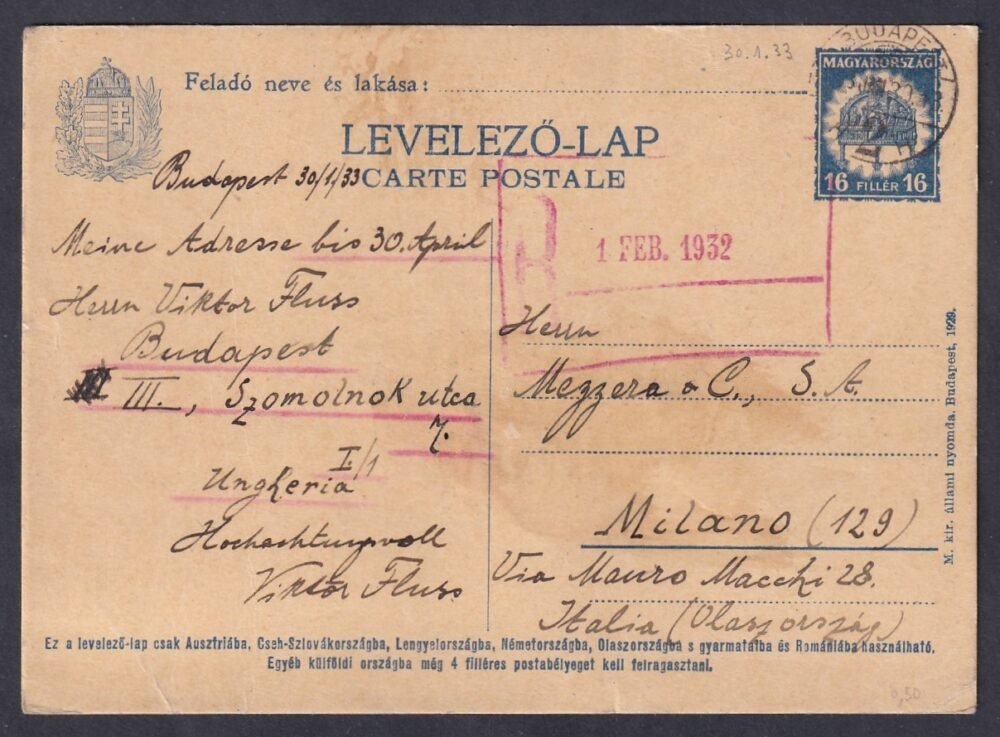 30.1.33
Feladó neve és lakása:
BUDAPEST
MAGYARORSZÁG
16 FILLÉR 16
LEVELEZŐ-LAP
CARTE POSTALE
Budapest 30/1/33
Meine Adresse bis 30. April
Herrn Viktor Fluss
Budapest
III., Szomolnok utca
7.
I/1
Ungheria
Hochachtungsvoll
Viktor Fluss
R
1 FEB. 1932
Herrn
Megzera & C., S. A.
Milano (129)
Via Mauro Macchi 28.
Italia (Olaszország)
M. kir. állami nyomda. Budapest, 1929.
Ez a levelező-lap csak Ausztriába, Cseh-Szlovákországba, Lengyelországba, Németországba, Olaszországba s gyarmataiba és Romániába használható.
Egyéb külföldi országba még 4 filléres postabélyeget kell felragasztani.
0,50